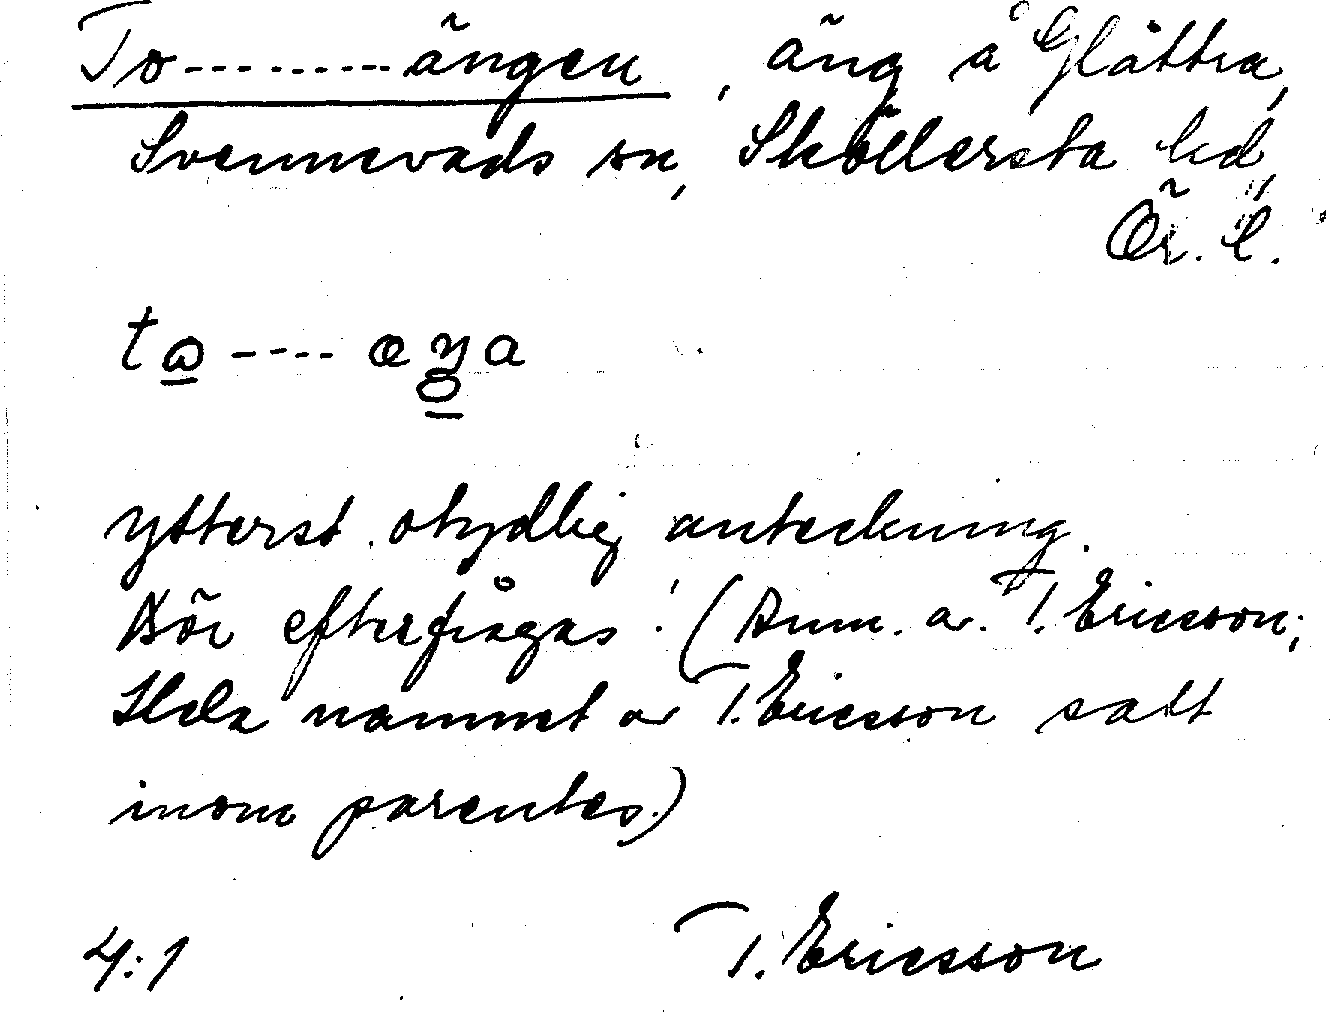 To---------ängen, äng å Glättra,
Svennevads sn, Sköllersta hd,
Ör. l.
ta----æŋa
ytterst otydlig anteckning.
Bör efterfrågas! (Anm. av T. Ericsson;
Hela namnet av T. Ericsson satt
inom parentes.)
4:1 T. Ericsson